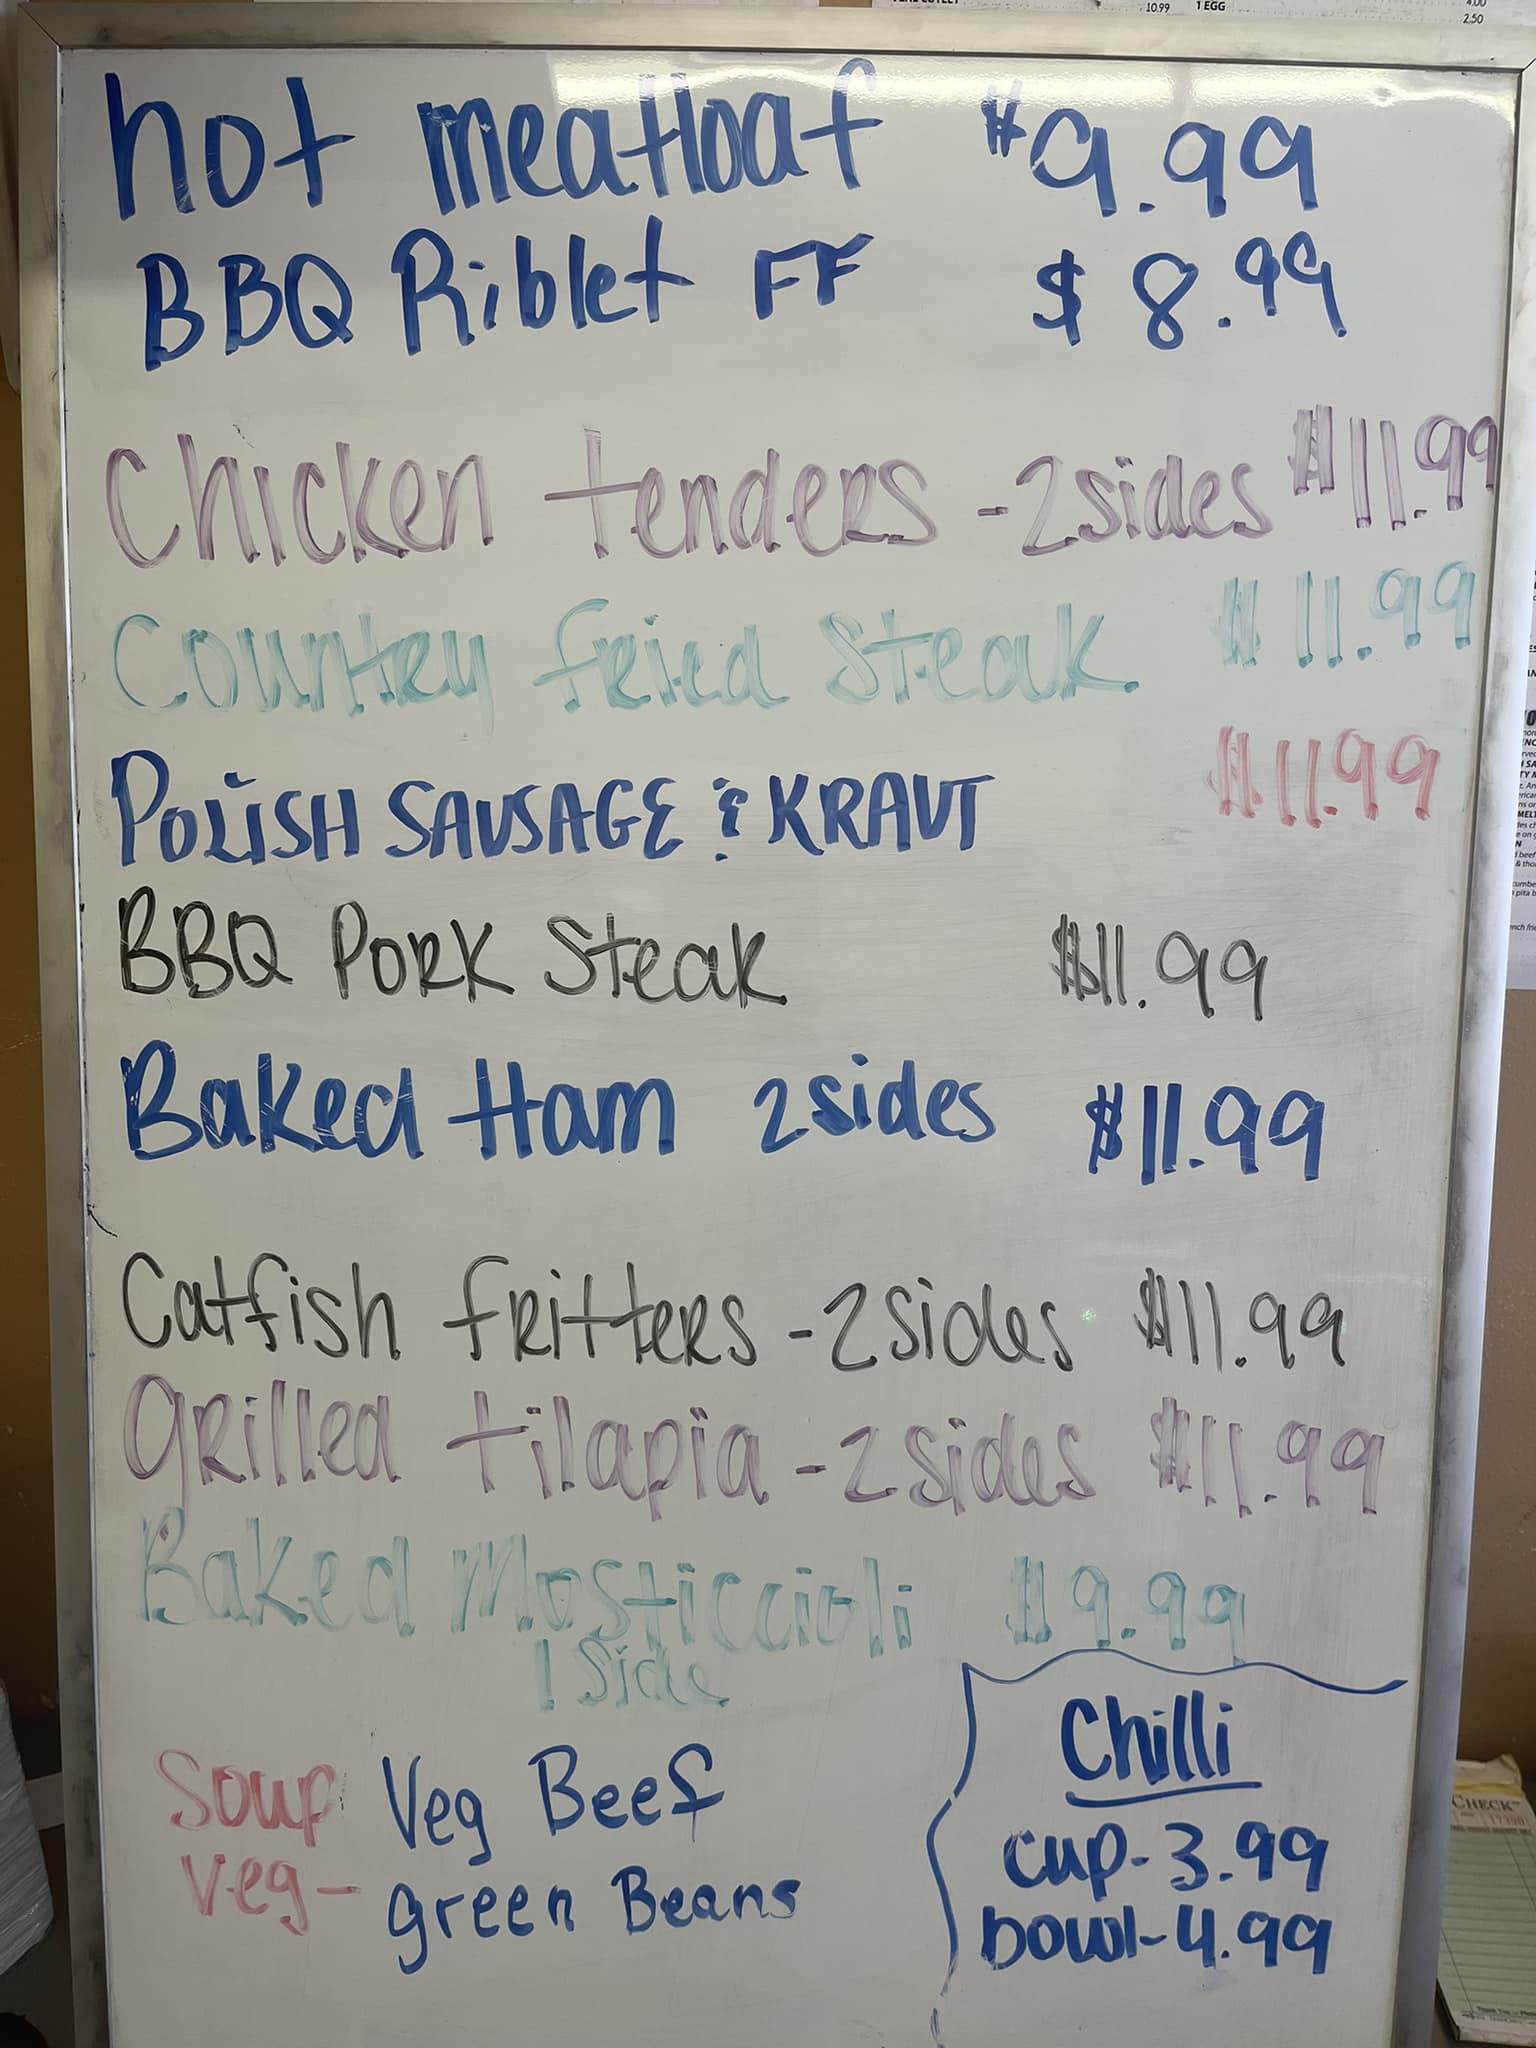 10.99 1 EGG 4.00
2.50
hot meatloaf $9.99
BBQ Riblet FF $8.99
Chicken tenders - 2 sides $11.99
Country fried Steak $11.99
POLISH SAUSAGE & KRAUT $11.99
BBQ Pork Steak $11.99
Baked Ham 2 sides $11.99
Catfish fritters - 2 sides $11.99
grilled tilapia - 2 sides $11.99
Baked Mosticcioli $9.99
1 Side
Soup Veg Beef
Veg - green Beans
Chilli
cup - 3.99
bowl - 4.99
CHECK